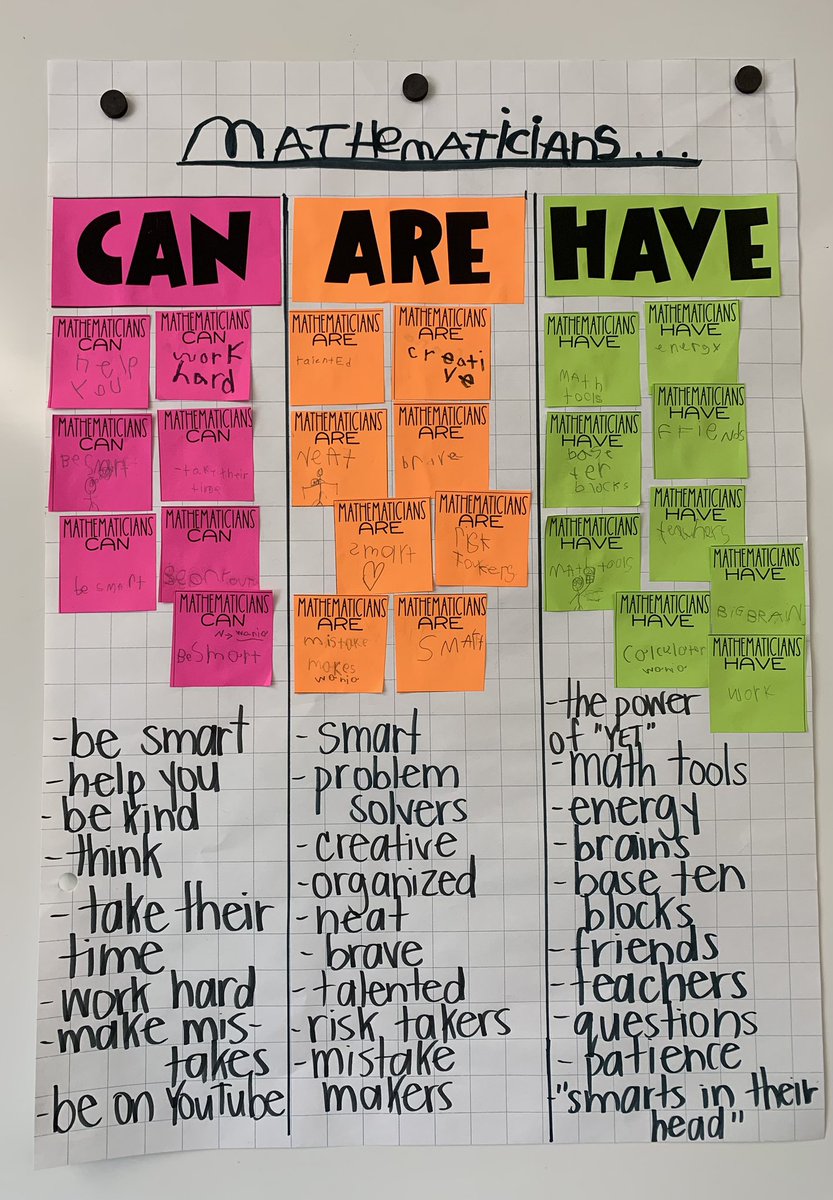 MATHematicians...
CAN
ARE
HAVE
MATHEMATICIANS
CAN
help
you
MATHEMATICIANS
CAN
work
hard
MATHEMATICIANS
CAN
Be smart
MATHEMATICIANS
CAN
-take their
time
MATHEMATICIANS
CAN
be smart
MATHEMATICIANS
CAN
MATHEMATICIANS
CAN
wania
Be Smart
MATHEMATICIANS
ARE
talented
MATHEMATICIANS
ARE
creati
ve
MATHEMATICIANS
ARE
NEAT
MATHEMATICIANS
ARE
brave
MATHEMATICIANS
ARE
smart
MATHEMATICIANS
ARE
risk
MATHEMATICIANS
ARE
mistake
makes
wania
MATHEMATICIANS
ARE
SMART
MATHEMATICIANS
HAVE
MAth
tools
MATHEMATICIANS
HAVE
energy
MATHEMATICIANS
HAVE
base
ten
blocks
MATHEMATICIANS
HAVE
FFIENDS
MATHEMATICIANS
HAVE
Math tools
MATHEMATICIANS
HAVE
teachers
MATHEMATICIANS
HAVE
BIG BRAIN
MATHEMATICIANS
HAVE
Calculater
wania
MATHEMATICIANS
HAVE
work
-be smart
-help you
-be kind
-think
-take their
time
-work hard
-make mis-
takes
-be on YouTube
-smart
-problem
solvers
-creative
-organized
-neat
-brave
-talented
-risk takers
-mistake
makers
-the power
of "YET"
-math tools
-energy
-brains
-base ten
blocks
-friends
-teachers
-questions
-patience
-"smarts in their
head"